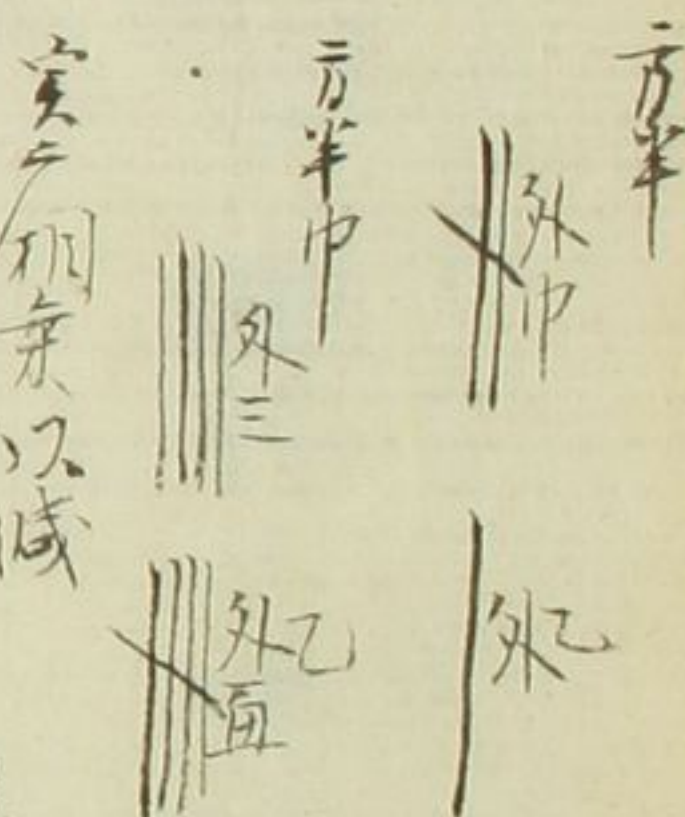 方半
外巾
外乙
方半巾
外三
外乙
実ニ相乗以減